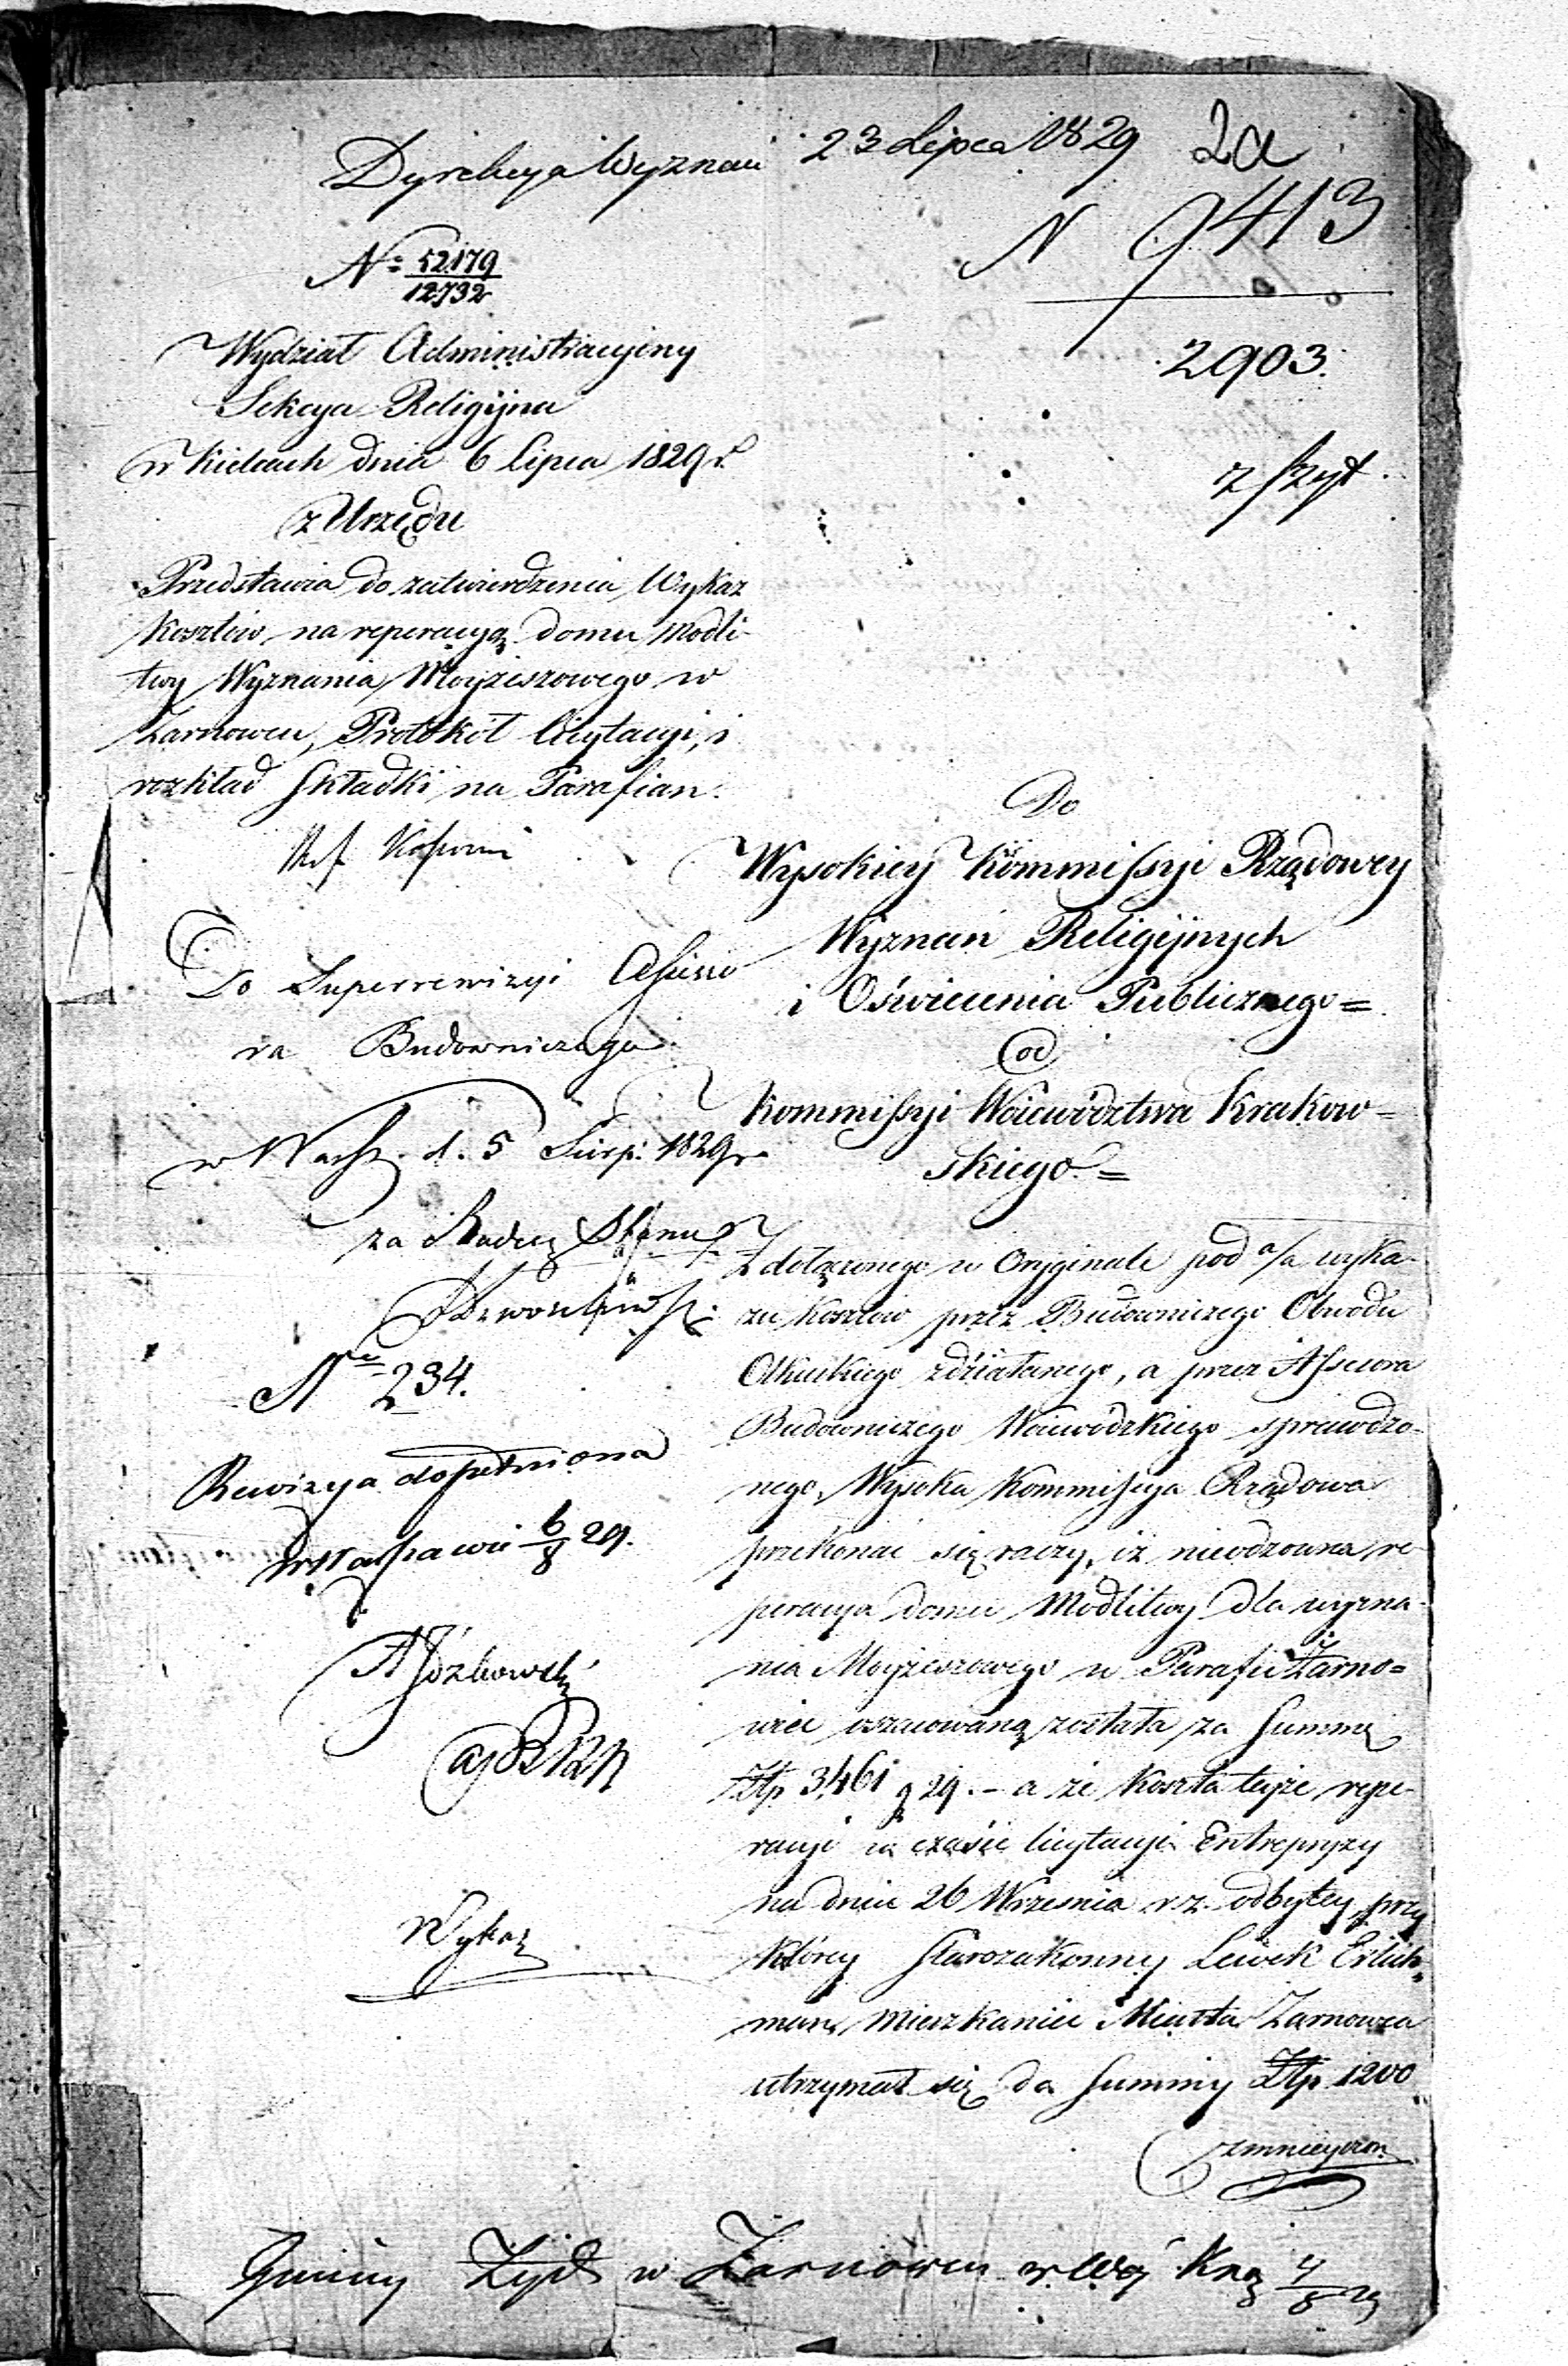 Dyrekcya Wyznań 23 Lipca 1829 2a
N 9413
2903.
z szyt
Nº 52179
12732
Wydział Administracyiny
Sekcya Religijna
w Kielcach dnia 6 lipca 1829 r.
z Urzędu
Przedstawia do zatwierdzenia Wykaz
kosztów na reperacyą domu modli-
twy Wyznania Moyżeszowego w
Żarnowcu, Protokół licytacyi, i
rozkład składki na Parafian.
Do Superrewizyi Assesso
ra Budowniczego
w Warsz. d. 5 Sierp: 1829 r.
za Radcę Stanu
Nro 234.
Rewizya dopełniona
w Warszawie 6/8 29.
Wykaz
Do
Wysokiey Kommissyi Rządowey
Wyznań Religijnych
i Oświecenia Publicznego =
od
Kommissyi Woiewództwa Krakow =
skiego. =
Z dołączonego w Oryginale pod a/a wyka-
zu kosztów przez Budowniczego Obwodu
Olkuskiego zdziałanego, a przez Assessora
Budowniczego Woiewódzkiego sprawdzo-
nego, Wysoka Kommissya Rządowa
przekonać się raczy, iż nieodzowna re-
peracya domu Modlitwy dla wyzna-
nia Moyżeszowego w Parafii Żarno =
wiec oszacowaną została za Summę
Złp 3,461 g 29. – a że koszta teyże repe-
racyi w czasie licytacyi Entrepryzy
na dniu 26 Września r.z. odbytey, przy
którey Starozakonny Lewek Erlich =
man, mieszkaniec Miasta Żarnowca
utrzymał się do Summy Złp 1200
zmnieyszon
Gminy Żyd w Żarnowcu w Woj Krag 4/8 29